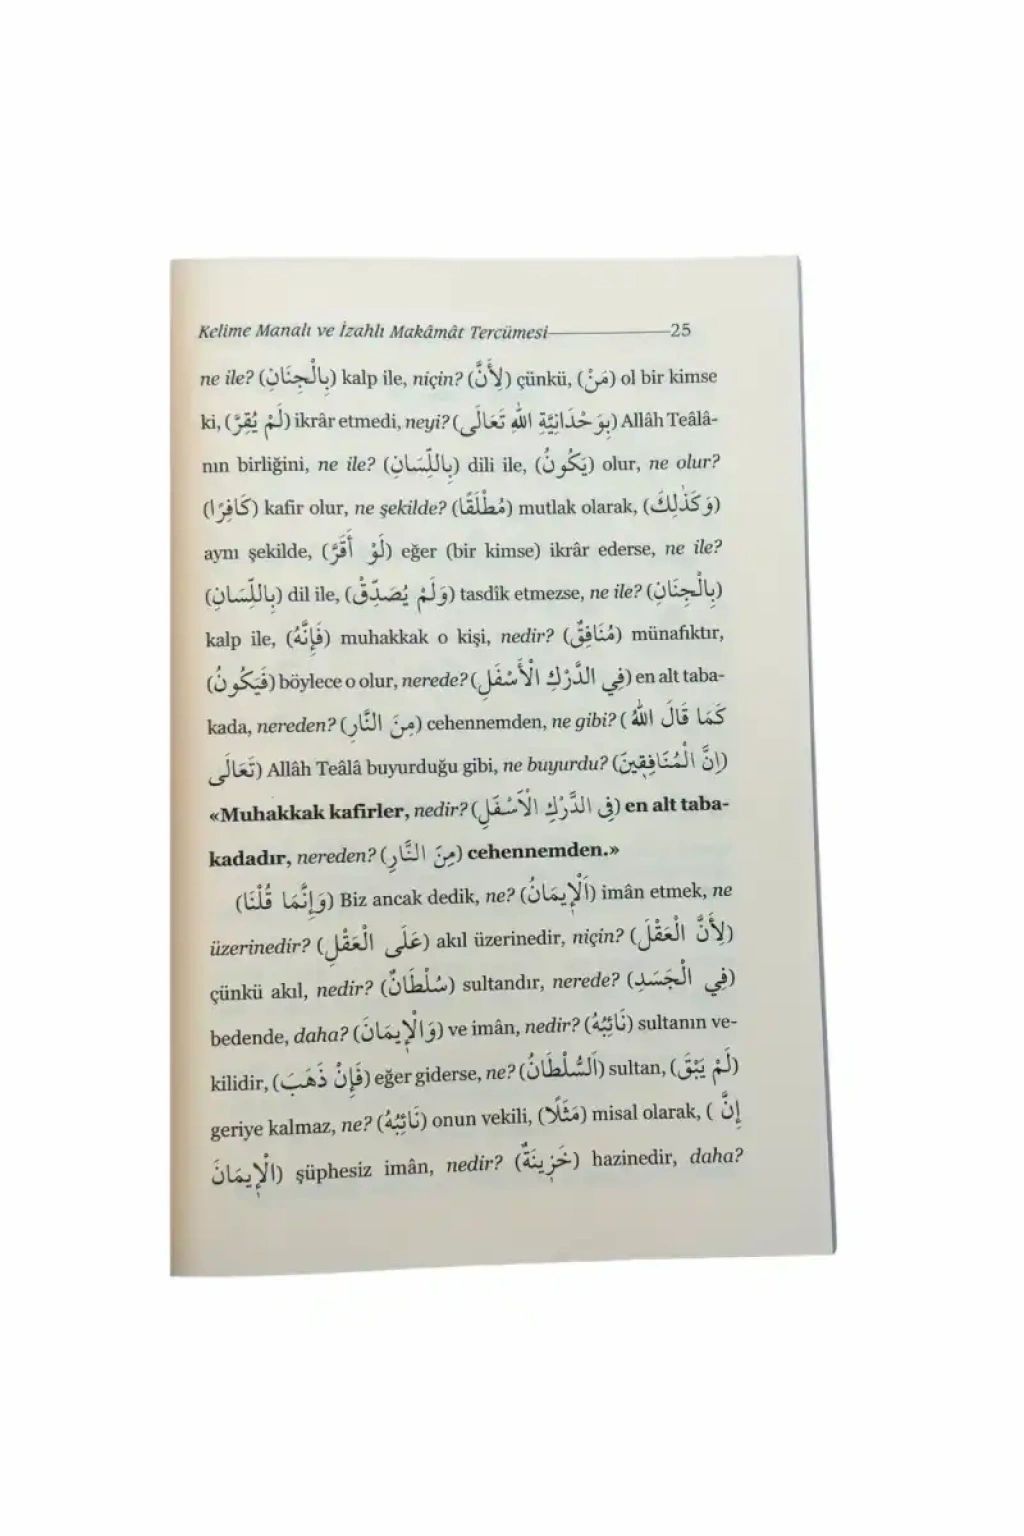 Kelime Manalı ve İzahlı Makâmât Tercümesi 25
ne ile? (بِالْجِنَانِ) kalp ile, niçin? (لِأَنَّ) çünkü, (مَنْ) ol bir kimse
ki, (لَمْ يُقِرَّ) ikrâr etmedi, neyi? (بِوَحْدَانِيَّةِ اللهِ تَعَالَى) Allâh Teâlâ-
nın birliğini, ne ile? (بِاللِّسَانِ) dili ile, (يَكُونُ) olur, ne olur?
(كَافِرًا) kafir olur, ne şekilde? (مُطْلَقًا) mutlak olarak, (وَكَذٰلِكَ)
aynı şekilde, (لَوْ أَقَرَّ) eğer (bir kimse) ikrâr ederse, ne ile?
(بِاللِّسَانِ) dil ile, (وَلَمْ يُصَدِّقْ) tasdîk etmezse, ne ile? (بِالْجِنَانِ)
kalp ile, (فَإِنَّهُ) muhakkak o kişi, nedir? (مُنَافِقٌ) münafıktır,
(فَيَكُونُ) böylece o olur, nerede? (فِي الدَّرْكِ الْأَسْفَلِ) en alt taba-
kada, nereden? (مِنَ النَّارِ) cehennemden, ne gibi? (كَمَا قَالَ اللهُ
تَعَالَى) Allâh Teâlâ buyurduğu gibi, ne buyurdu? (اِنَّ الْمُنَافِقِينَ)
«Muhakkak kafirler, nedir? (فِي الدَّرْكِ الْاَسْفَلِ) en alt taba-
kadadır, nereden? (مِنَ النَّارِ) cehennemden.»
(وَإِنَّمَا قُلْنَا) Biz ancak dedik, ne? (اَلْإِيمَانُ) imân etmek, ne
üzerinedir? (عَلَى الْعَقْلِ) akıl üzerinedir, niçin? (لِأَنَّ الْعَقْلَ)
çünkü akıl, nedir? (سُلْطَانٌ) sultandır, nerede? (فِي الْجَسَدِ)
bedende, daha? (وَالْإِيمَانَ) ve imân, nedir? (نَائِبُهُ) sultanın ve-
kilidir, (فَإِنْ ذَهَبَ) eğer giderse, ne? (اَلسُّلْطَانُ) sultan, (لَمْ يَبْقَ)
geriye kalmaz, ne? (نَائِبُهُ) onun vekili, (مَثَلًا) misal olarak, (إِنَّ
الْإِيمَانَ) şüphesiz imân, nedir? (خَزِينَةٌ) hazinedir, daha?